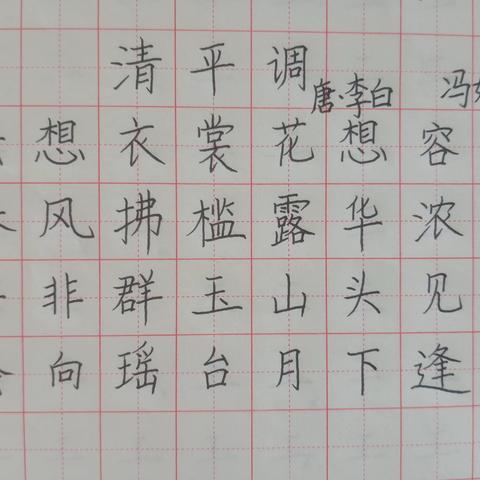 清平调
唐·李白 冯
想衣裳花想容
风拂槛露华浓
非群玉山头见
向瑶台月下逢